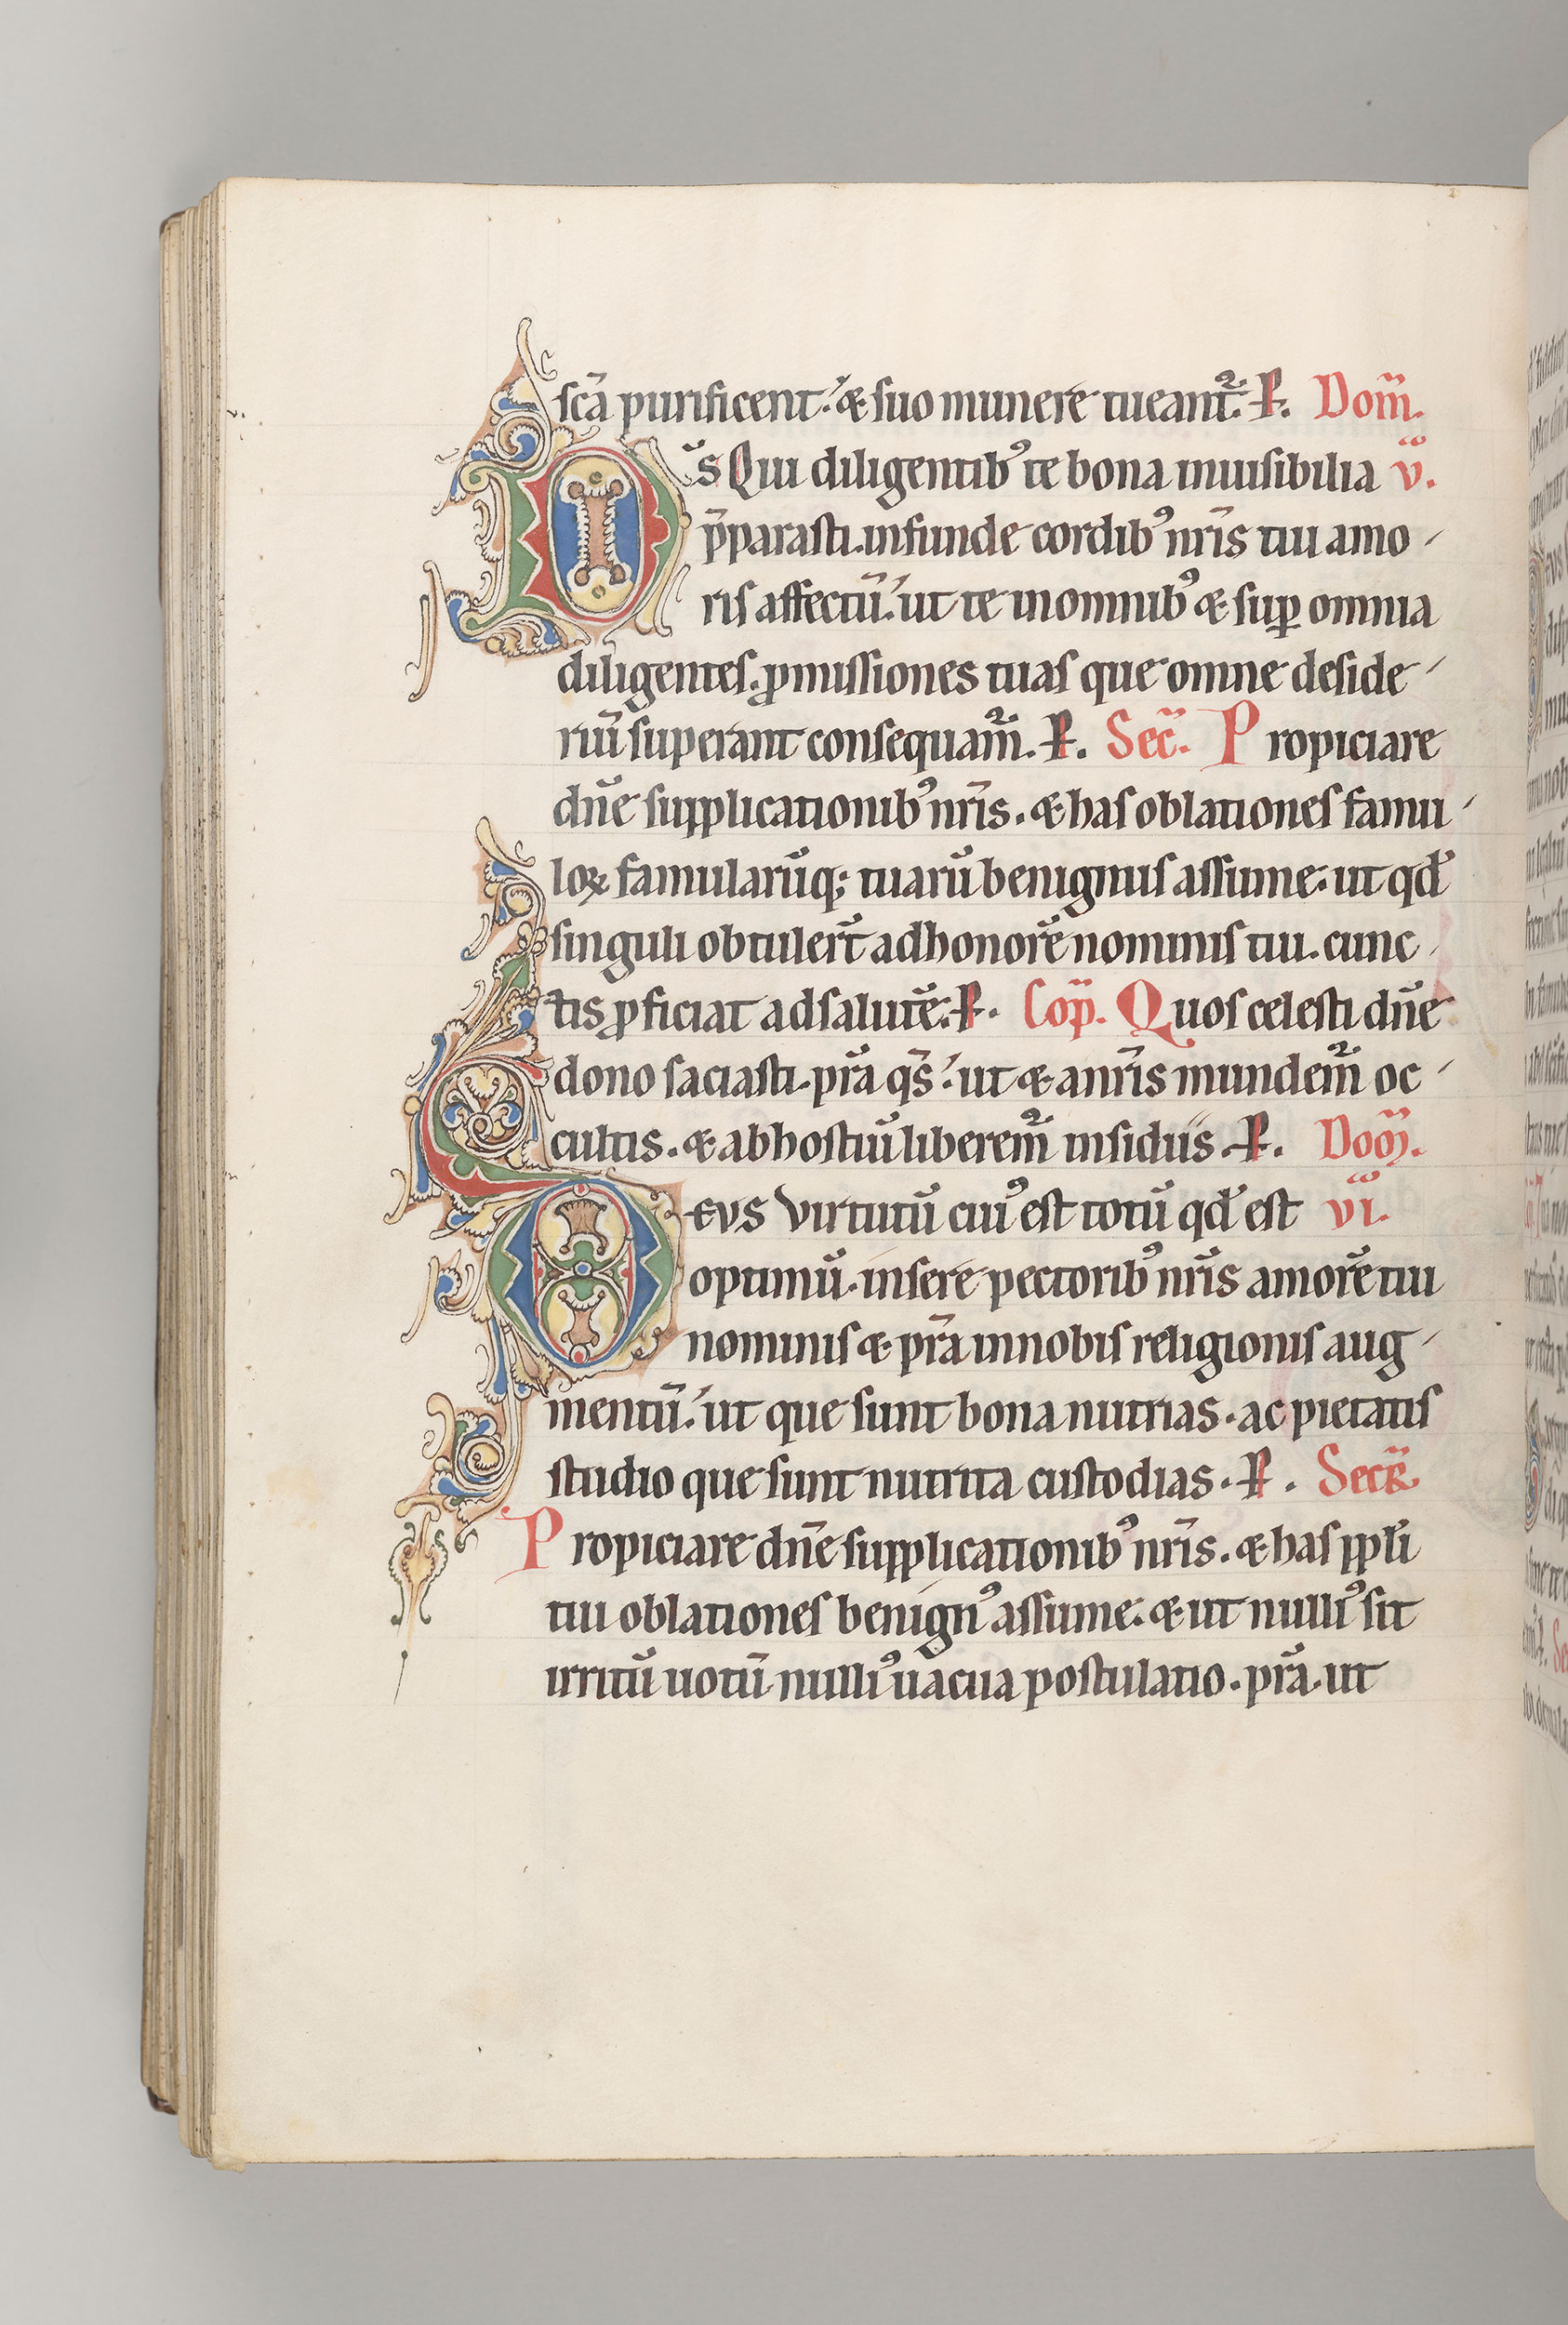 scā purificent. & suo munere tueant᷑. P. Dom̄.
D s̄ Qui diligentibꝰ te bona inuisibilia v.
p̄parasti. infunde cordibꝰ nr̄is tui amo-
ris affectū. ut te in omnibꝰ & suꝑ omnia
diligentes. ꝓmissiones tuas que omne deside-
riū superant consequam᷑. P. Sec̄. Propiciare
dn̄e supplicationibꝰ nr̄is. & has oblationes famu-
loꝝ famularūq; tuarū benignus assume. ut qd̄
singuli obtuler̄t ad honorē nominis tui. cunc-
tis ꝓficiat ad salutē. P. Cop̄. Quos celesti dn̄e
dono saciasti. pr̄a qs̄. ut & a nr̄is mundem᷑ oc-
cultis. & ab hostiū liberem᷑ insidiis. P. Dom̄.
DEVS virtutū cuiꝰ est totū qd̄ est vi.
optimū. insere pectoribꝰ nr̄is amorē tui
nominis & pr̄a in nobis religionis aug-
mentū. ut que sunt bona nutrias. ac pietatis
studio que sunt nutrita custodias. P. Secr̄.
Propiciare dn̄e supplicationibꝰ nr̄is. & has ppl̄i
tui oblationes benignꝰ assume. & ut nulliꝰ sit
irritū uotū nulliꝰ uacua postulatio. pr̄a. ut